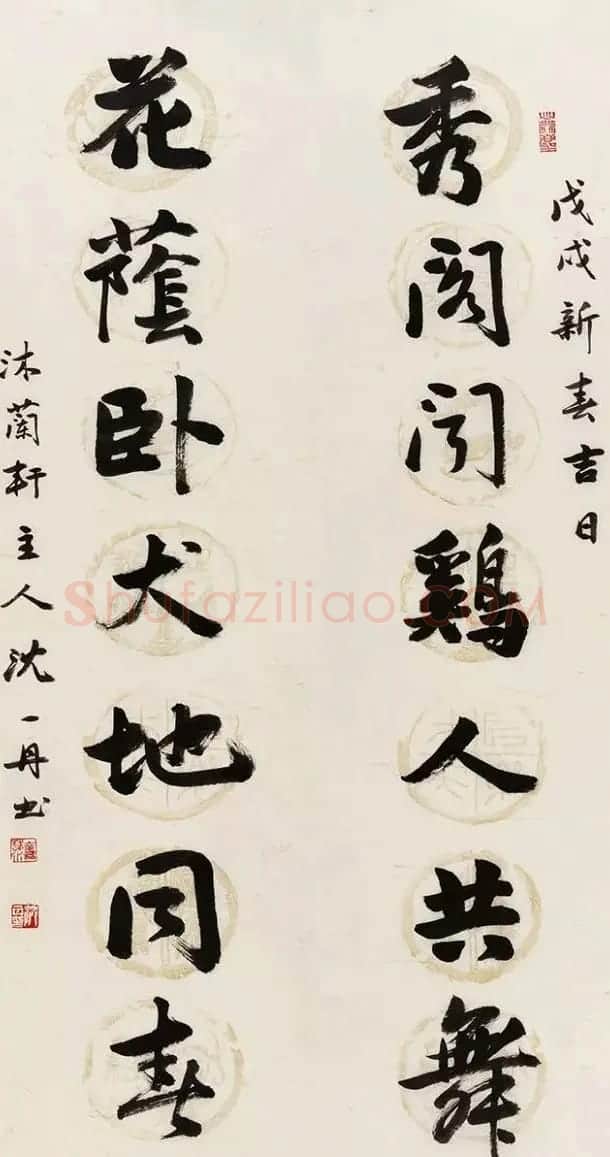 戊戌新春吉日
秀阁闻鷄人共舞
花蔭卧犬地同春
沐蘭轩主人沈一丹书
Shufaziliao.COM